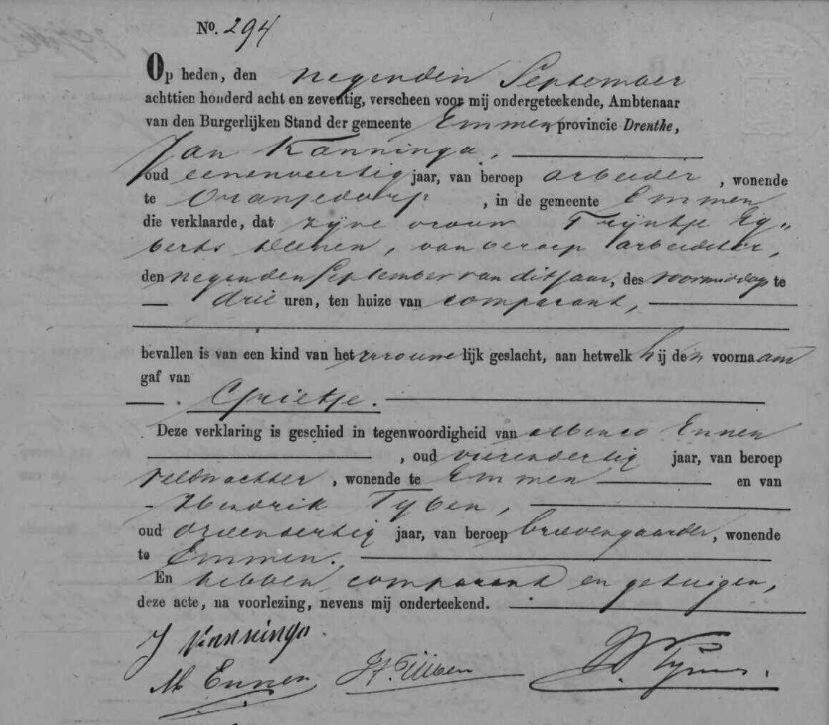 No. 294
Op heden, den negenden September
achttien honderd acht en zeventig, verscheen voor mij ondergeteekende, Ambtenaar
van den Burgerlijken Stand der gemeente Emmen provincie Drenthe,
Jan Kanninga,
oud eenenveertig jaar, van beroep arbeider, wonende
te Oranjedorp, in de gemeente Emmen
die verklaarde, dat zijne vrouw Trijntje Eg„
berts , van beroep arbeidster,
den negenden September van dit jaar, des voormiddags te
drie uren, ten huize van comparant,
bevallen is van een kind van het vrouwelijk geslacht, aan hetwelk hij den voornaam
gaf van
Grietje.
Deze verklaring is geschied in tegenwoordigheid van Ennen
, oud vierendertig jaar, van beroep
veldwachter, wonende te Emmen en van
Hendrik Tyben,
oud drieendertig jaar, van beroep brievengaarder, wonende
te Emmen.
En hebben comparant en getuigen,
deze acte, na voorlezing, nevens mij onderteekend.
J Kanninga.
M Ennen H. Tijben